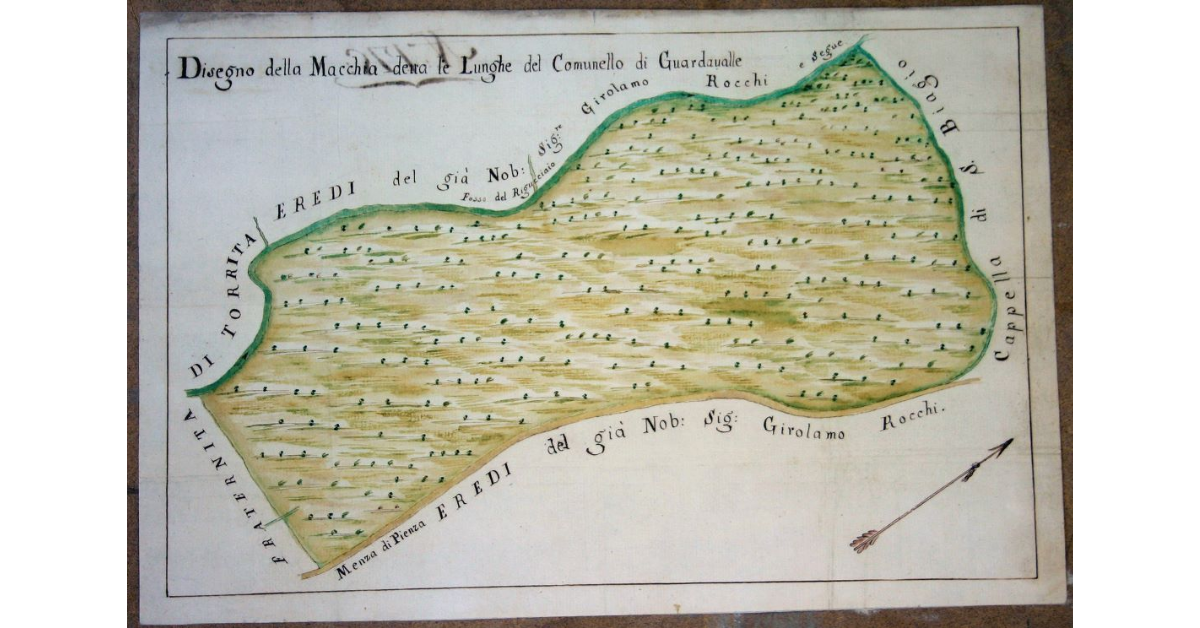 Disegno della Macchia detta le Lunghe del Comunello di Guardavalle
FRATERNITA DI TORRITA
EREDI del già Nob: Sig:re Girolamo Rocchi e Segue
Fosso del
Cappella di S. Biagio
Menza di Pienza
EREDI del già Nob: Sig: Girolamo Rocchi.